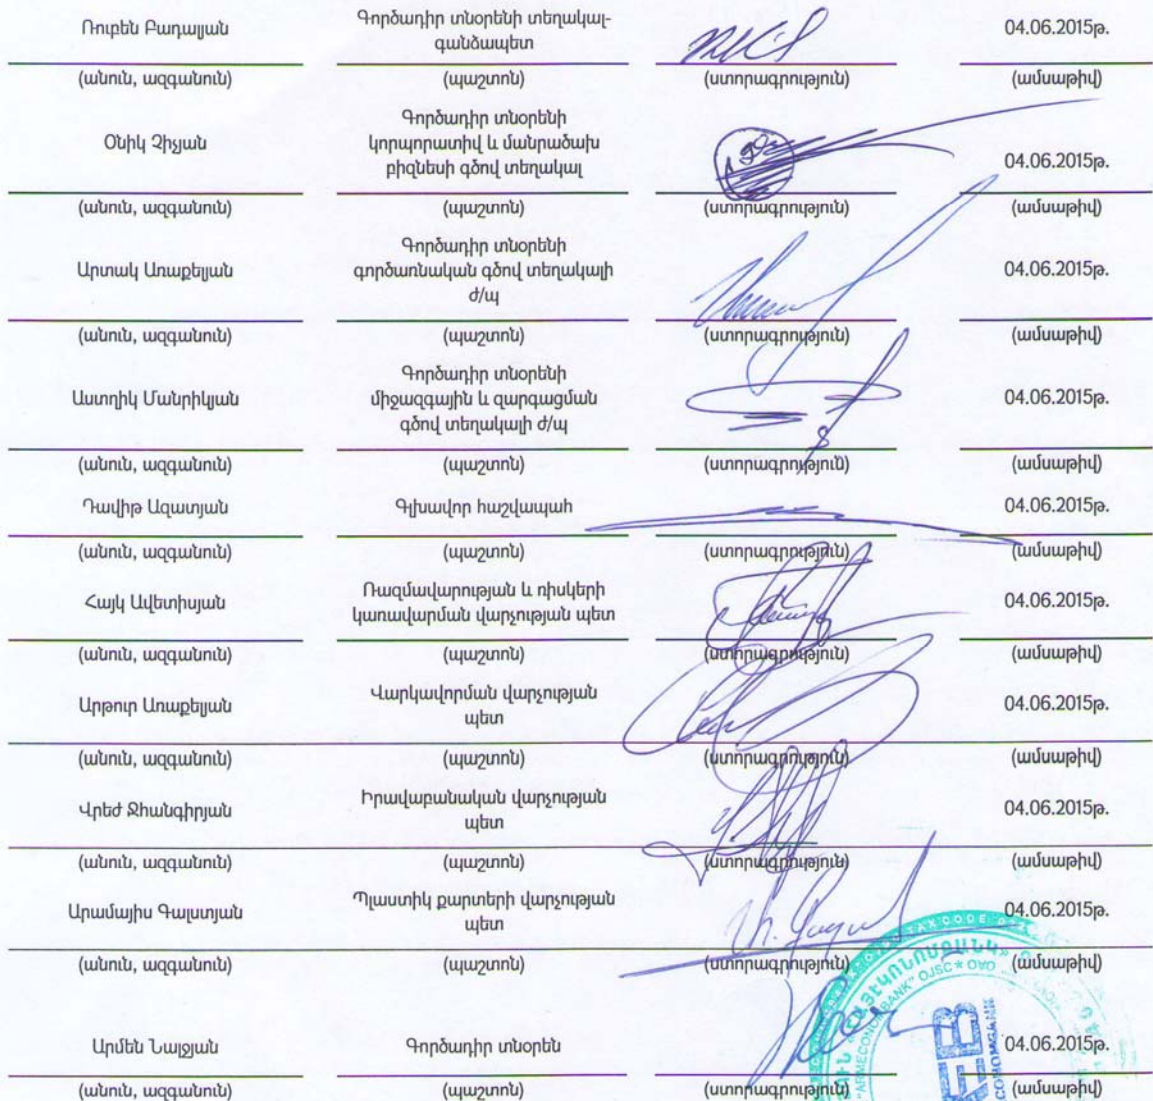 Ռուբեն Բադալյան
Գործադիր տնօրենի տեղակալ-
գանձապետ
04.06.2015թ.
(անուն, ազգանուն) (պաշտոն) (ստորագրություն) (ամսաթիվ)
Օնիկ Չիչյան
Գործադիր տնօրենի
կորպորատիվ և մանրածախ
բիզնեսի գծով տեղակալ
04.06.2015թ.
(անուն, ազգանուն) (պաշտոն) (ստորագրություն) (ամսաթիվ)
Արտակ Առաքելյան
Գործադիր տնօրենի
գործառնական գծով տեղակալի
ժ/պ
04.06.2015թ.
(անուն, ազգանուն) (պաշտոն) (ստորագրություն) (ամսաթիվ)
Աստղիկ Մանրիկյան
Գործադիր տնօրենի
միջազգային և զարգացման
գծով տեղակալի ժ/պ
04.06.2015թ.
(անուն, ազգանուն) (պաշտոն) (ստորագրություն) (ամսաթիվ)
Դավիթ Ազատյան Գլխավոր հաշվապահ 04.06.2015թ.
(անուն, ազգանուն) (պաշտոն) (ստորագրություն) (ամսաթիվ)
Հայկ Ավետիսյան
Ռազմավարության և ռիսկերի
կառավարման վարչության պետ
04.06.2015թ.
(անուն, ազգանուն) (պաշտոն) (ստորագրություն) (ամսաթիվ)
Արթուր Առաքելյան
Վարկավորման վարչության
պետ
04.06.2015թ.
(անուն, ազգանուն) (պաշտոն) (ստորագրություն) (ամսաթիվ)
Վրեժ Ջհանգիրյան
Իրավաբանական վարչության
պետ
04.06.2015թ.
(անուն, ազգանուն) (պաշտոն) (ստորագրություն) (ամսաթիվ)
Արամայիս Գալստյան
Պլաստիկ քարտերի վարչության
պետ
04.06.2015թ.
(անուն, ազգանուն) (պաշտոն) (ստորագրություն) (ամսաթիվ)
Արմեն Նալջյան Գործադիր տնօրեն 04.06.2015թ.
(անուն, ազգանուն) (պաշտոն) (ստորագրություն) (ամսաթիվ)